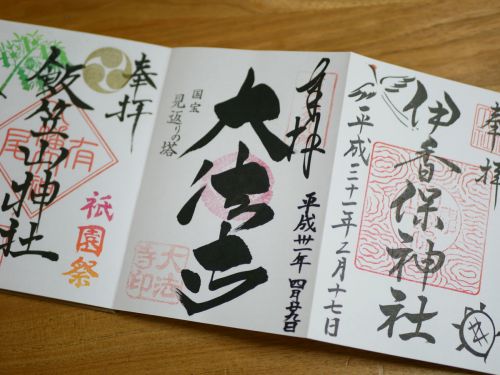 奉拝
伊香保神社
平成三十一年二月十七日
奉拝
大法寺
国宝
見返りの塔
平成卅一年 四月廿九日
大法
寺印
奉拝
飯笠山神社
祇園祭